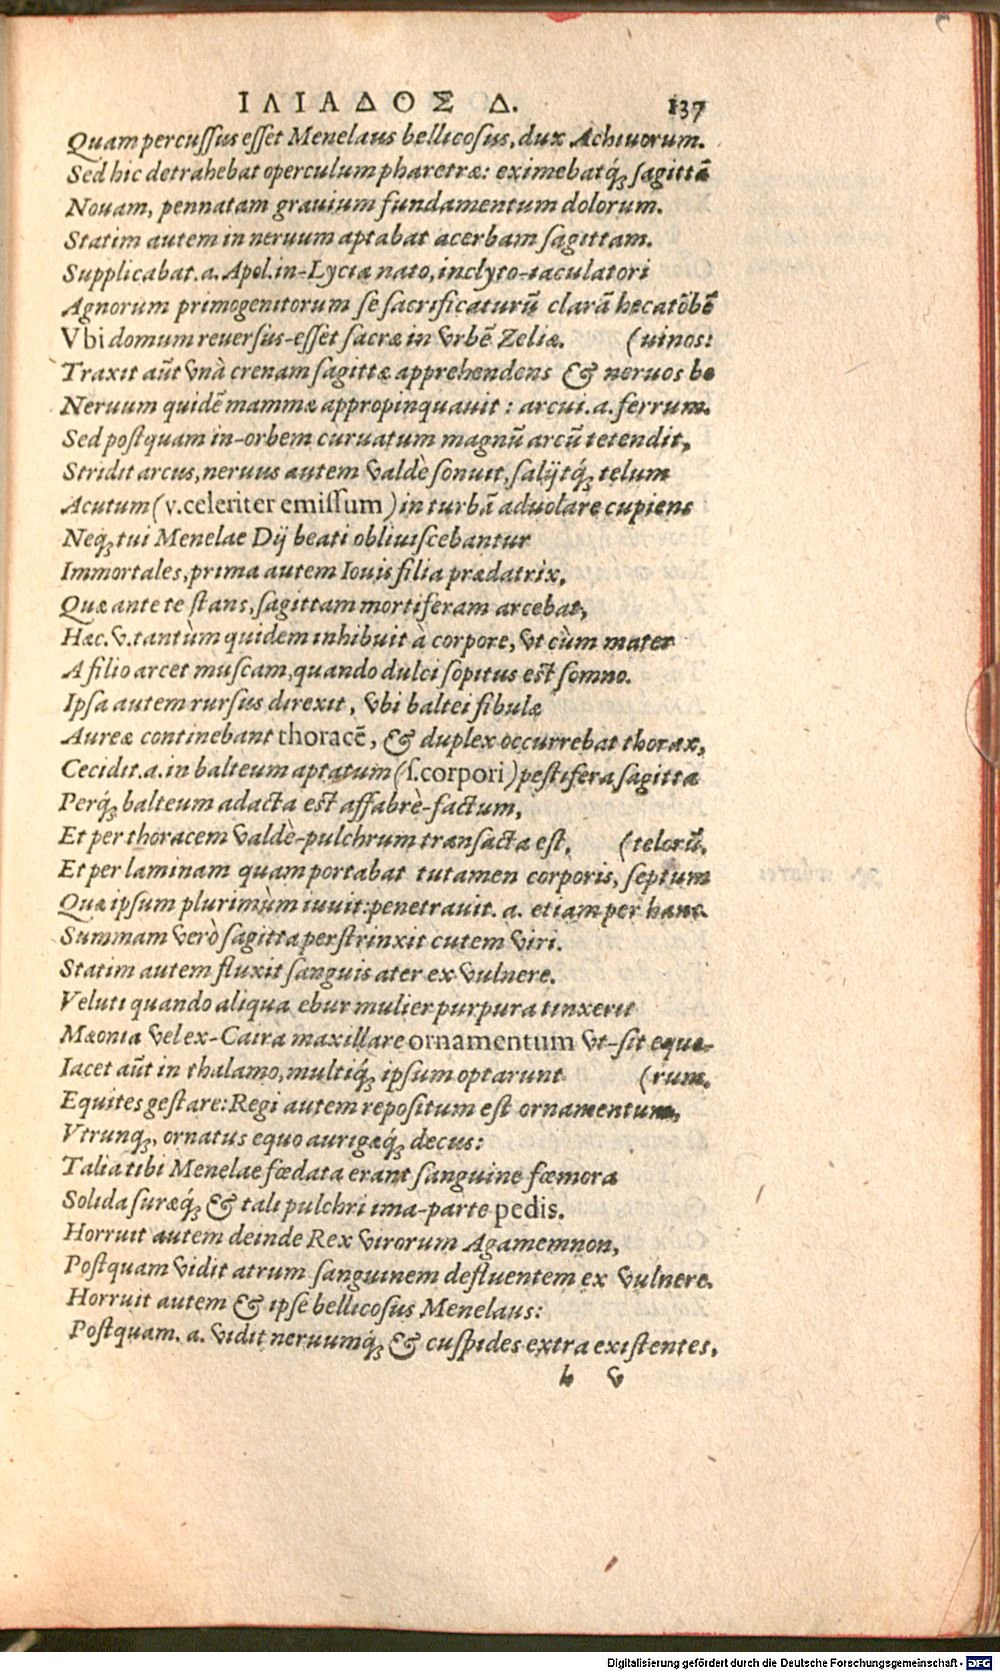 ΙΛΙΑΔΟΣ Δ. 137
Quam percuſſus eſſet Menelaus bellicoſus, dux Achiuorum.
Sed hic detrahebat operculum pharetræ: eximebatq́; ſagittā
Nouam, pennatam grauium fundamentum dolorum.
Statim autem in neruum aptabat acerbam ſagittam.
Supplicabat. a. Apol. in-Lycia nato, inclyto-iaculatori
Agnorum primogenitorum ſe ſacrificaturū clarā hecatōbē
Vbi domum reuerſus-eſſet ſacræ in vrbē Zeliæ. (uinos:
Traxit aūt vnà crenam ſagittæ apprehendens & neruos bo
Neruum quidē mammæ appropinquauit: arcui. a. ferrum.
Sed poſtquam in-orbem curuatum magnū arcū tetendit,
Stridit arcus, neruus autem valdè ſonuit, ſalijtq́; telum
Acutum (v.celeriter emiſſum) in turbā aduolare cupiens
Neq; tui Menelae Dij beati obliuiſcebantur
Immortales, prima autem Iouis filia prædatrix,
Quæ ante te ſtans, ſagittam mortiferam arcebat,
Hæc. v. tantùm quidem inhibuit à corpore, vt cùm mater
A filio arcet muſcam, quando dulci ſopitus eſt ſomno.
Ipſa autem rurſus direxit, vbi baltei fibulæ
Aureæ continebant thoracē, & duplex occurrebat thorax,
Cecidit. a. in balteum aptatum (ſ.corpori) peſtifera ſagitta
Perq́; balteum adacta eſt affabrè-factum,
Et per thoracem valdè-pulchrum transacta eſt, (telorū.
Et per laminam quam portabat tutamen corporis, ſeptum
Quæ ipſum plurimùm iuuit: penetrauit. a. etiam per hanc.
Summam verò ſagitta perſtrinxit cutem viri.
Statim autem fluxit ſanguis ater ex vulnere.
Veluti quando aliqua ebur mulier purpura tinxerit
Mæonia vel ex-Caira maxillare ornamentum vt-ſit equo-
Iacet aūt in thalamo, multiq́; ipſum optarunt (rum.
Equites geſtare: Regi autem repoſitum eſt ornamentum,
Vtrunq;, ornatus equo aurigæq́; decus:
Talia tibi Menelae fœdata erant ſanguine fœmora
Solida ſuræq́; & tali pulchri ima-parte pedis.
Horruit autem deinde Rex virorum Agamemnon,
Poſtquam vidit atrum ſanguinem defluentem ex vulnere.
Horruit autem & ipſe bellicoſus Menelaus:
Poſtquam. a. vidit neruumq́; & cuſpides extra exiſtentes,
h v
Digitalisierung gefördert durch die Deutsche Forschungsgemeinschaft - DFG